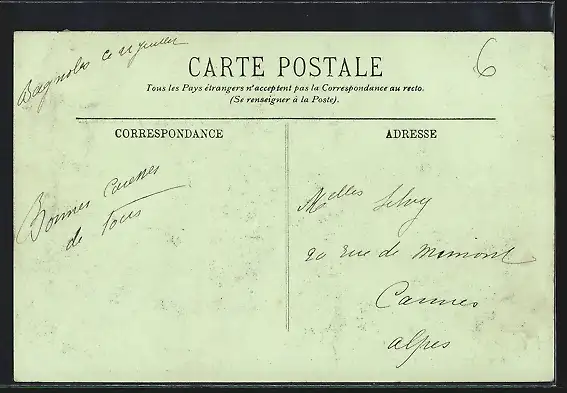 Bagnoles ce
6
CARTE POSTALE
Tous les Pays étrangers n'acceptent pas la Correspondance au recto.
(Se renseigner à la Poste).
CORRESPONDANCE
Bonnes caresses
de Tous
ADRESSE
Melles Selvy
20 rue de Mimont
Cannes
alpes